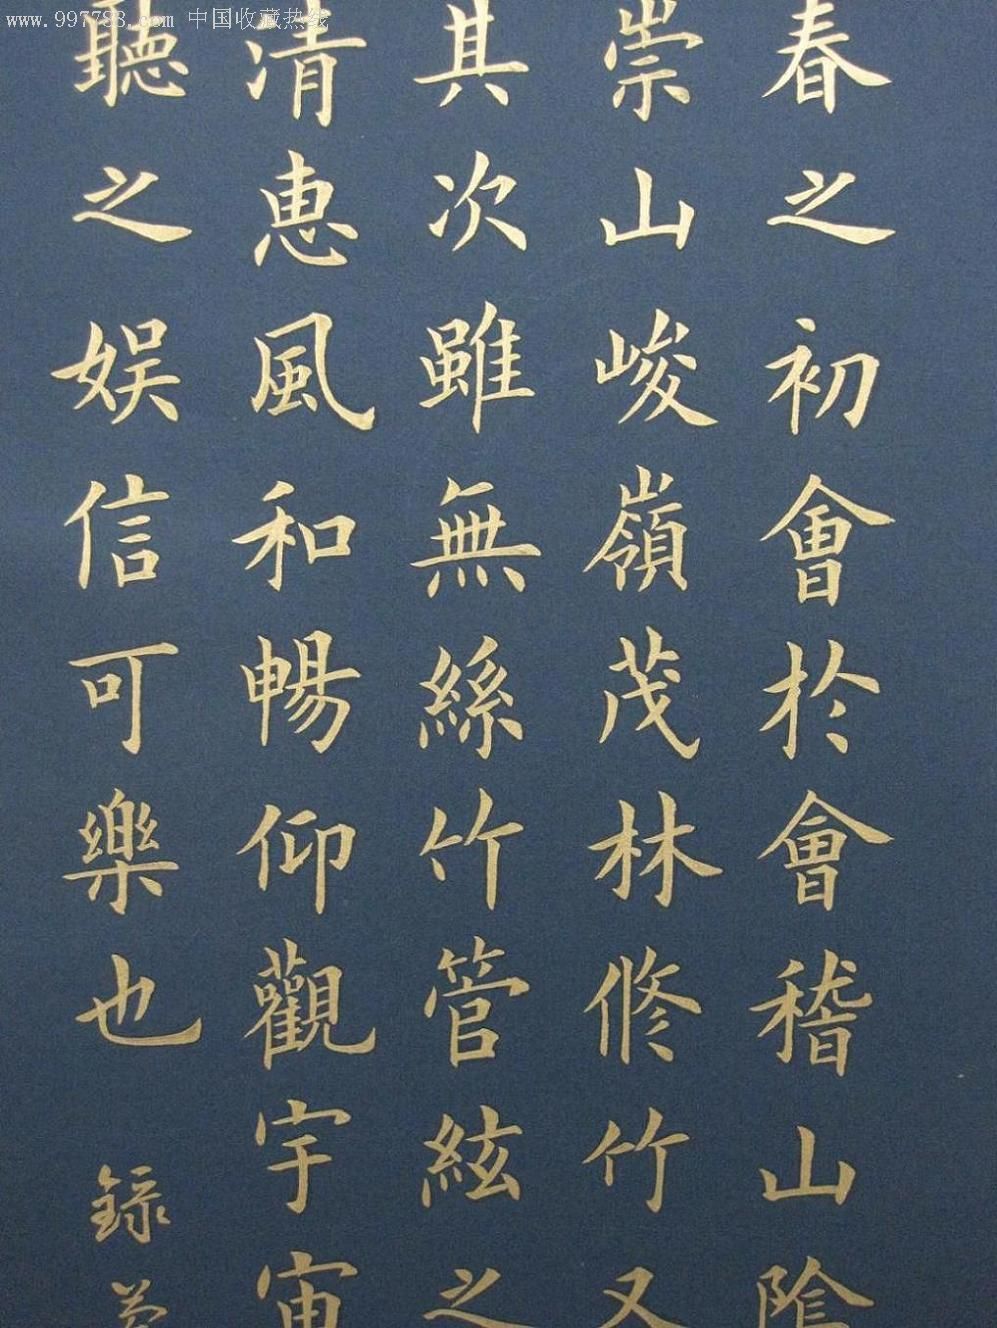 www.997788.com 中国收藏热线
春之初會於會稽山陰
崇山峻嶺茂林修竹又
其次雖無絲竹管絃之
清惠風和暢仰觀宇宙
聽之娛信可樂也 錄蘭